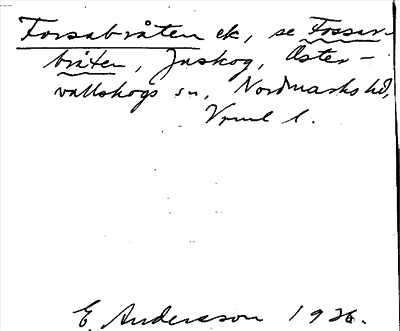 Forsabråten ek, se Fossar-
bråten, Jnskog, Öster-
vallskogs sn, Nordmarks hd,
Vrml l.
E. Andersson 1926.